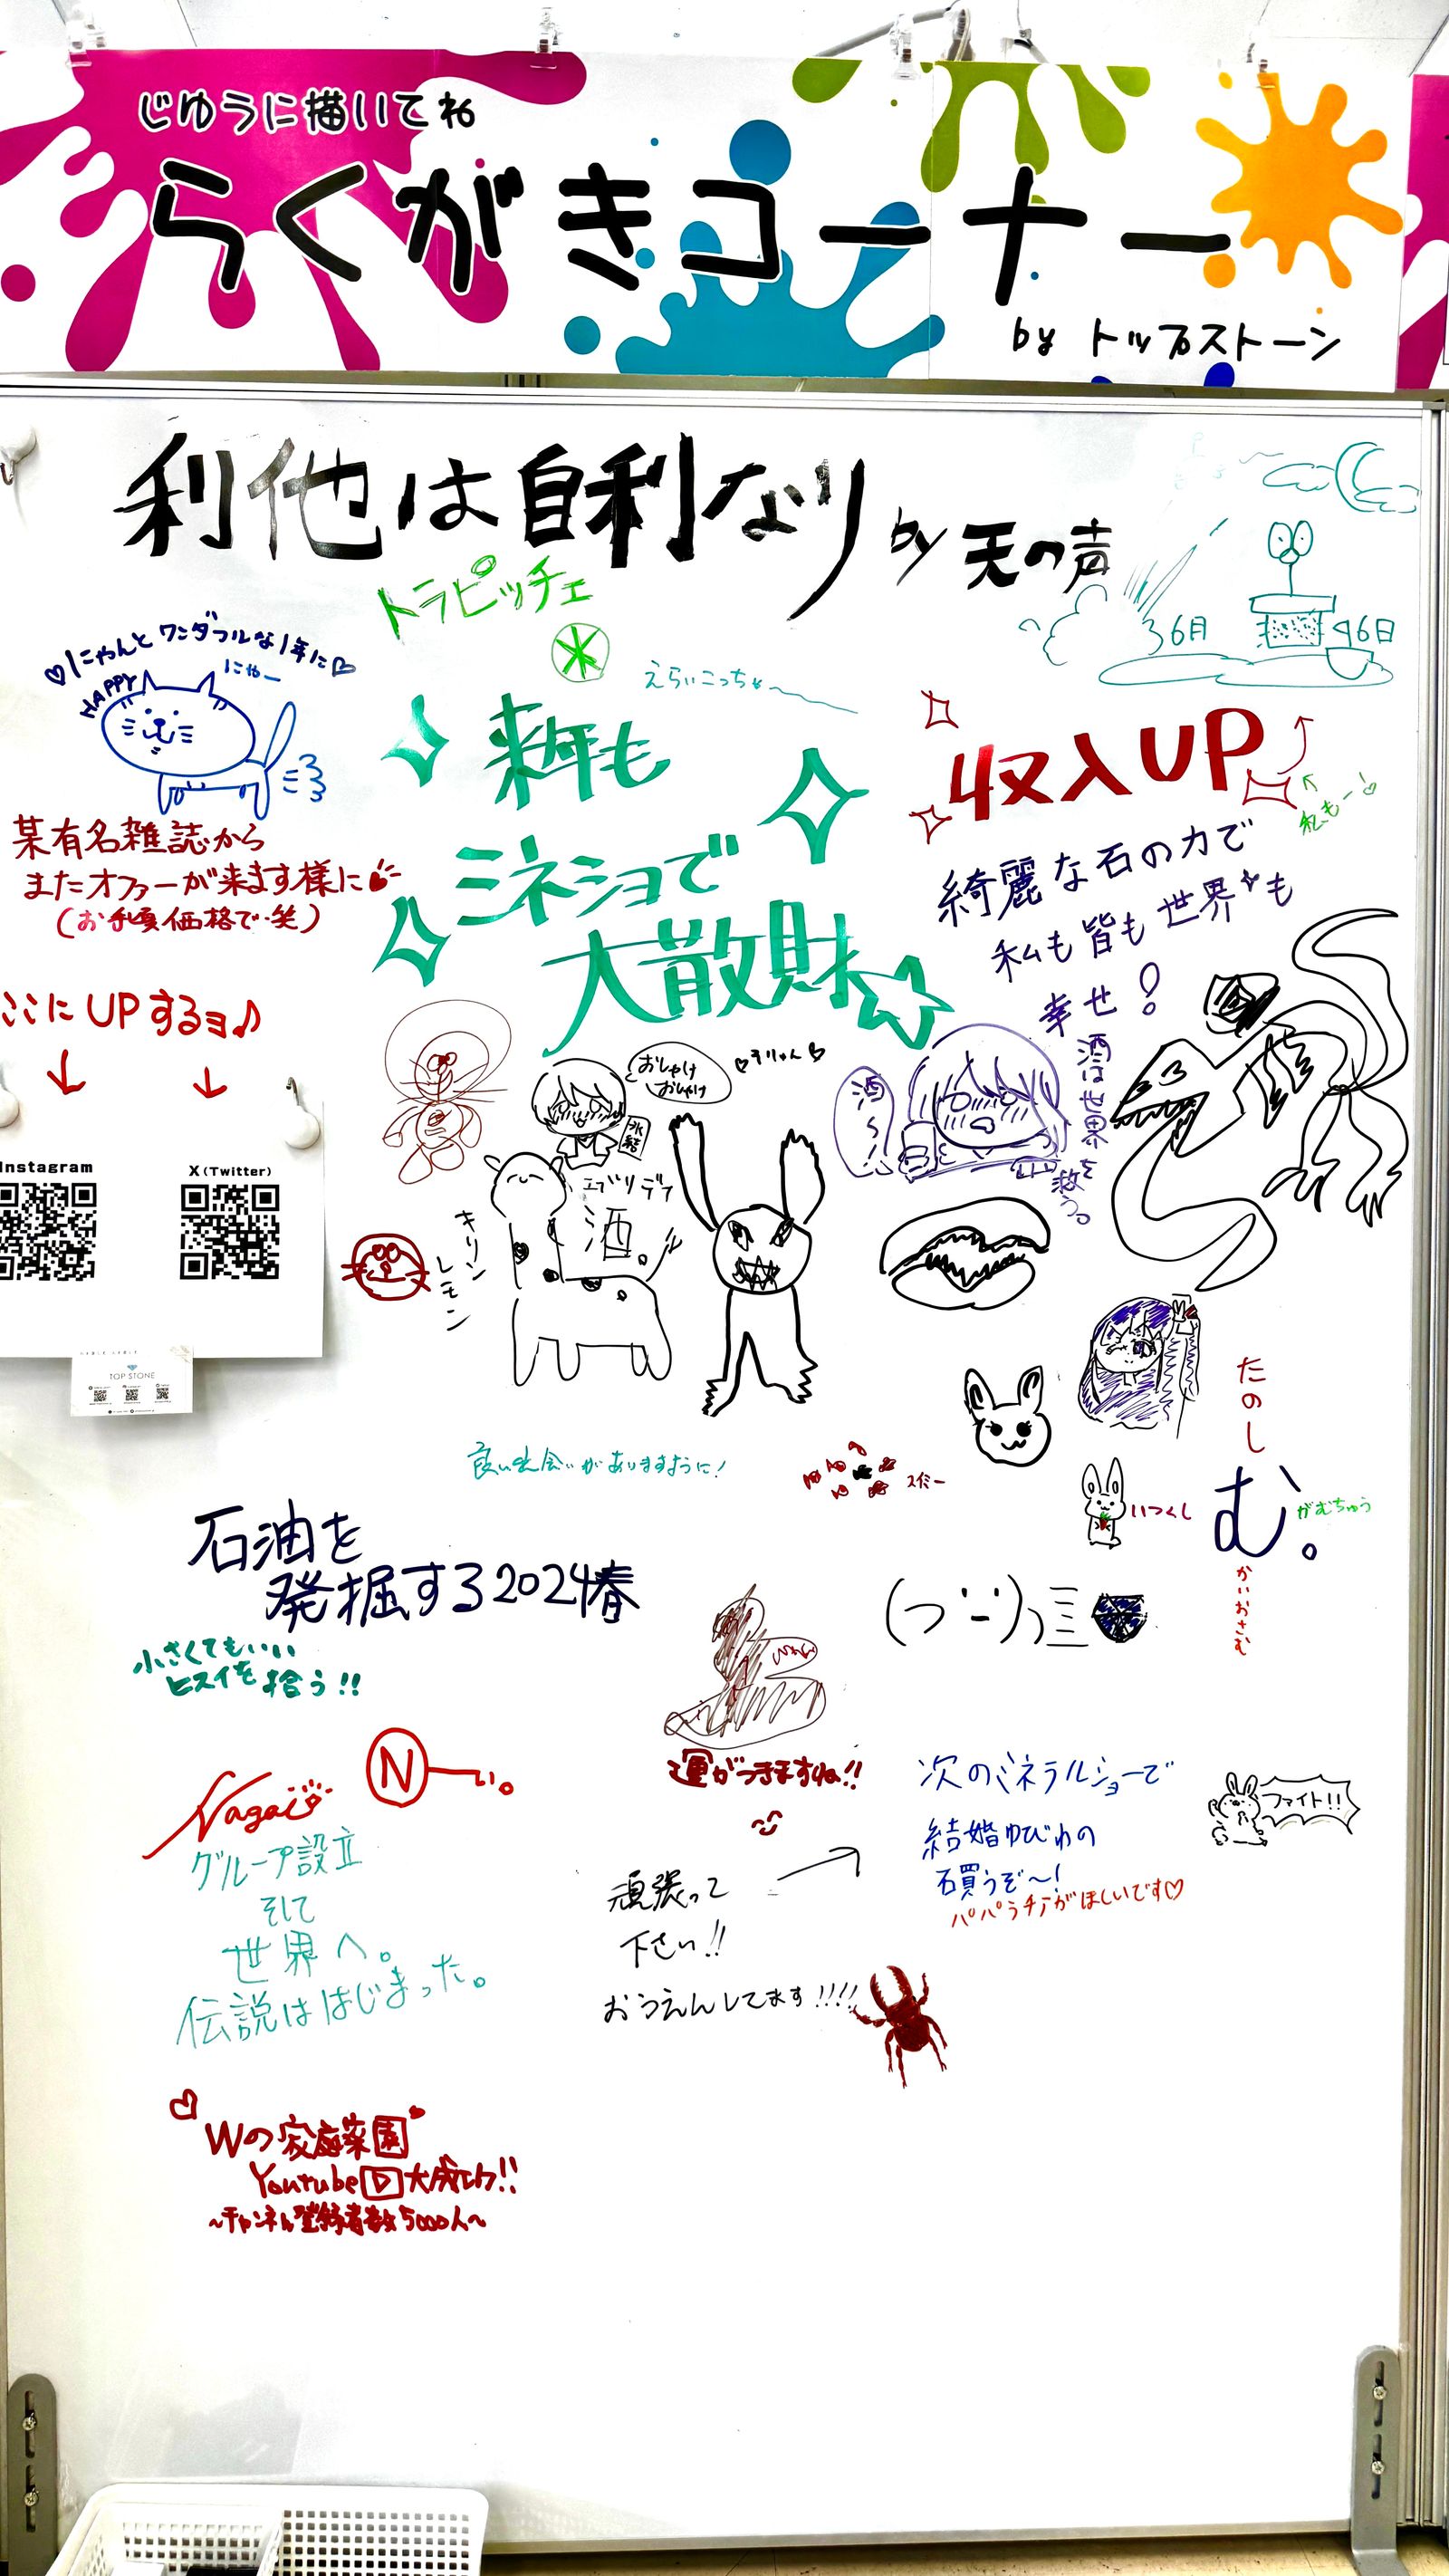 じゆうに描いてね
らくがきコーナー
by トップストーン
利他は自利なり by 天の声
トラピッチェ
36月
96日
♡にゃんとワンダフルな1年に♡
HAPPY
にゃー
えらいこっちゃ〜
来年も
ミネショで
大散財
収入UP
私もー!
某有名雑誌から
またオファーが来ます様に
(お手頃価格で・笑)
綺麗な石の力で
私も皆も世界も
幸せ!
ここにUPするヨ♪
Instagram
X (Twitter)
TOP STONE
おしゃけ
おしゃけ
氷結
エブリデイ
酒。
キリン
レモン
酒〜
酒は世界を救う。
良い出会いがありますように!
スイミー
いつくし
たのし
む。
がむちゅう
かいおさむ
石油を
発掘する2024春
小さくてもいい
ヒスイを拾う!!
(つ'-')つ三
Nい。
Nagai
グループ設立
そして
世界へ。
伝説ははじまった。
運がつきますね!!
次のミネラルショーで
結婚ゆびわの
石買うぞ〜!
パパラチアがほしいです♡
ファイト!!
頑張って
下さい!!
おうえんしてます!!!!
Wの家庭菜園
Youtube大成功!!
~チャンネル登録者数5000人~